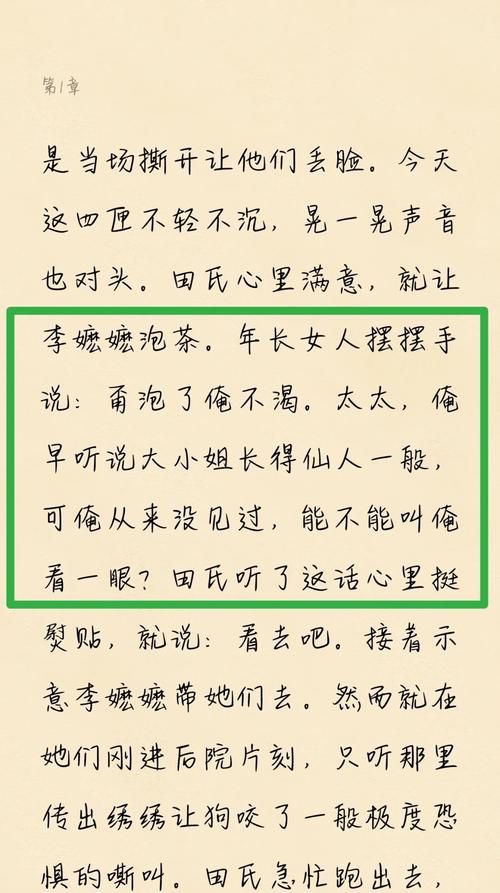 第1章
是当场撕开让他们丢脸。今天
这四匣不轻不沉，晃一晃声音
也对头。田氏心里满意，就让
李嬷嬷泡茶。年长女人摆摆手
说：甭泡了俺不渴。太太，俺
早听说大小姐长得仙人一般，
可俺从来没见过，能不能叫俺
看一眼？田氏听了这话心里挺
熨贴，就说：看去吧。接着示
意李嬷嬷带她们去。然而就在
她们刚进后院片刻，只听那里
传出绣绣让狗咬了一般极度恐
惧的嘶叫。田氏急忙跑出去，